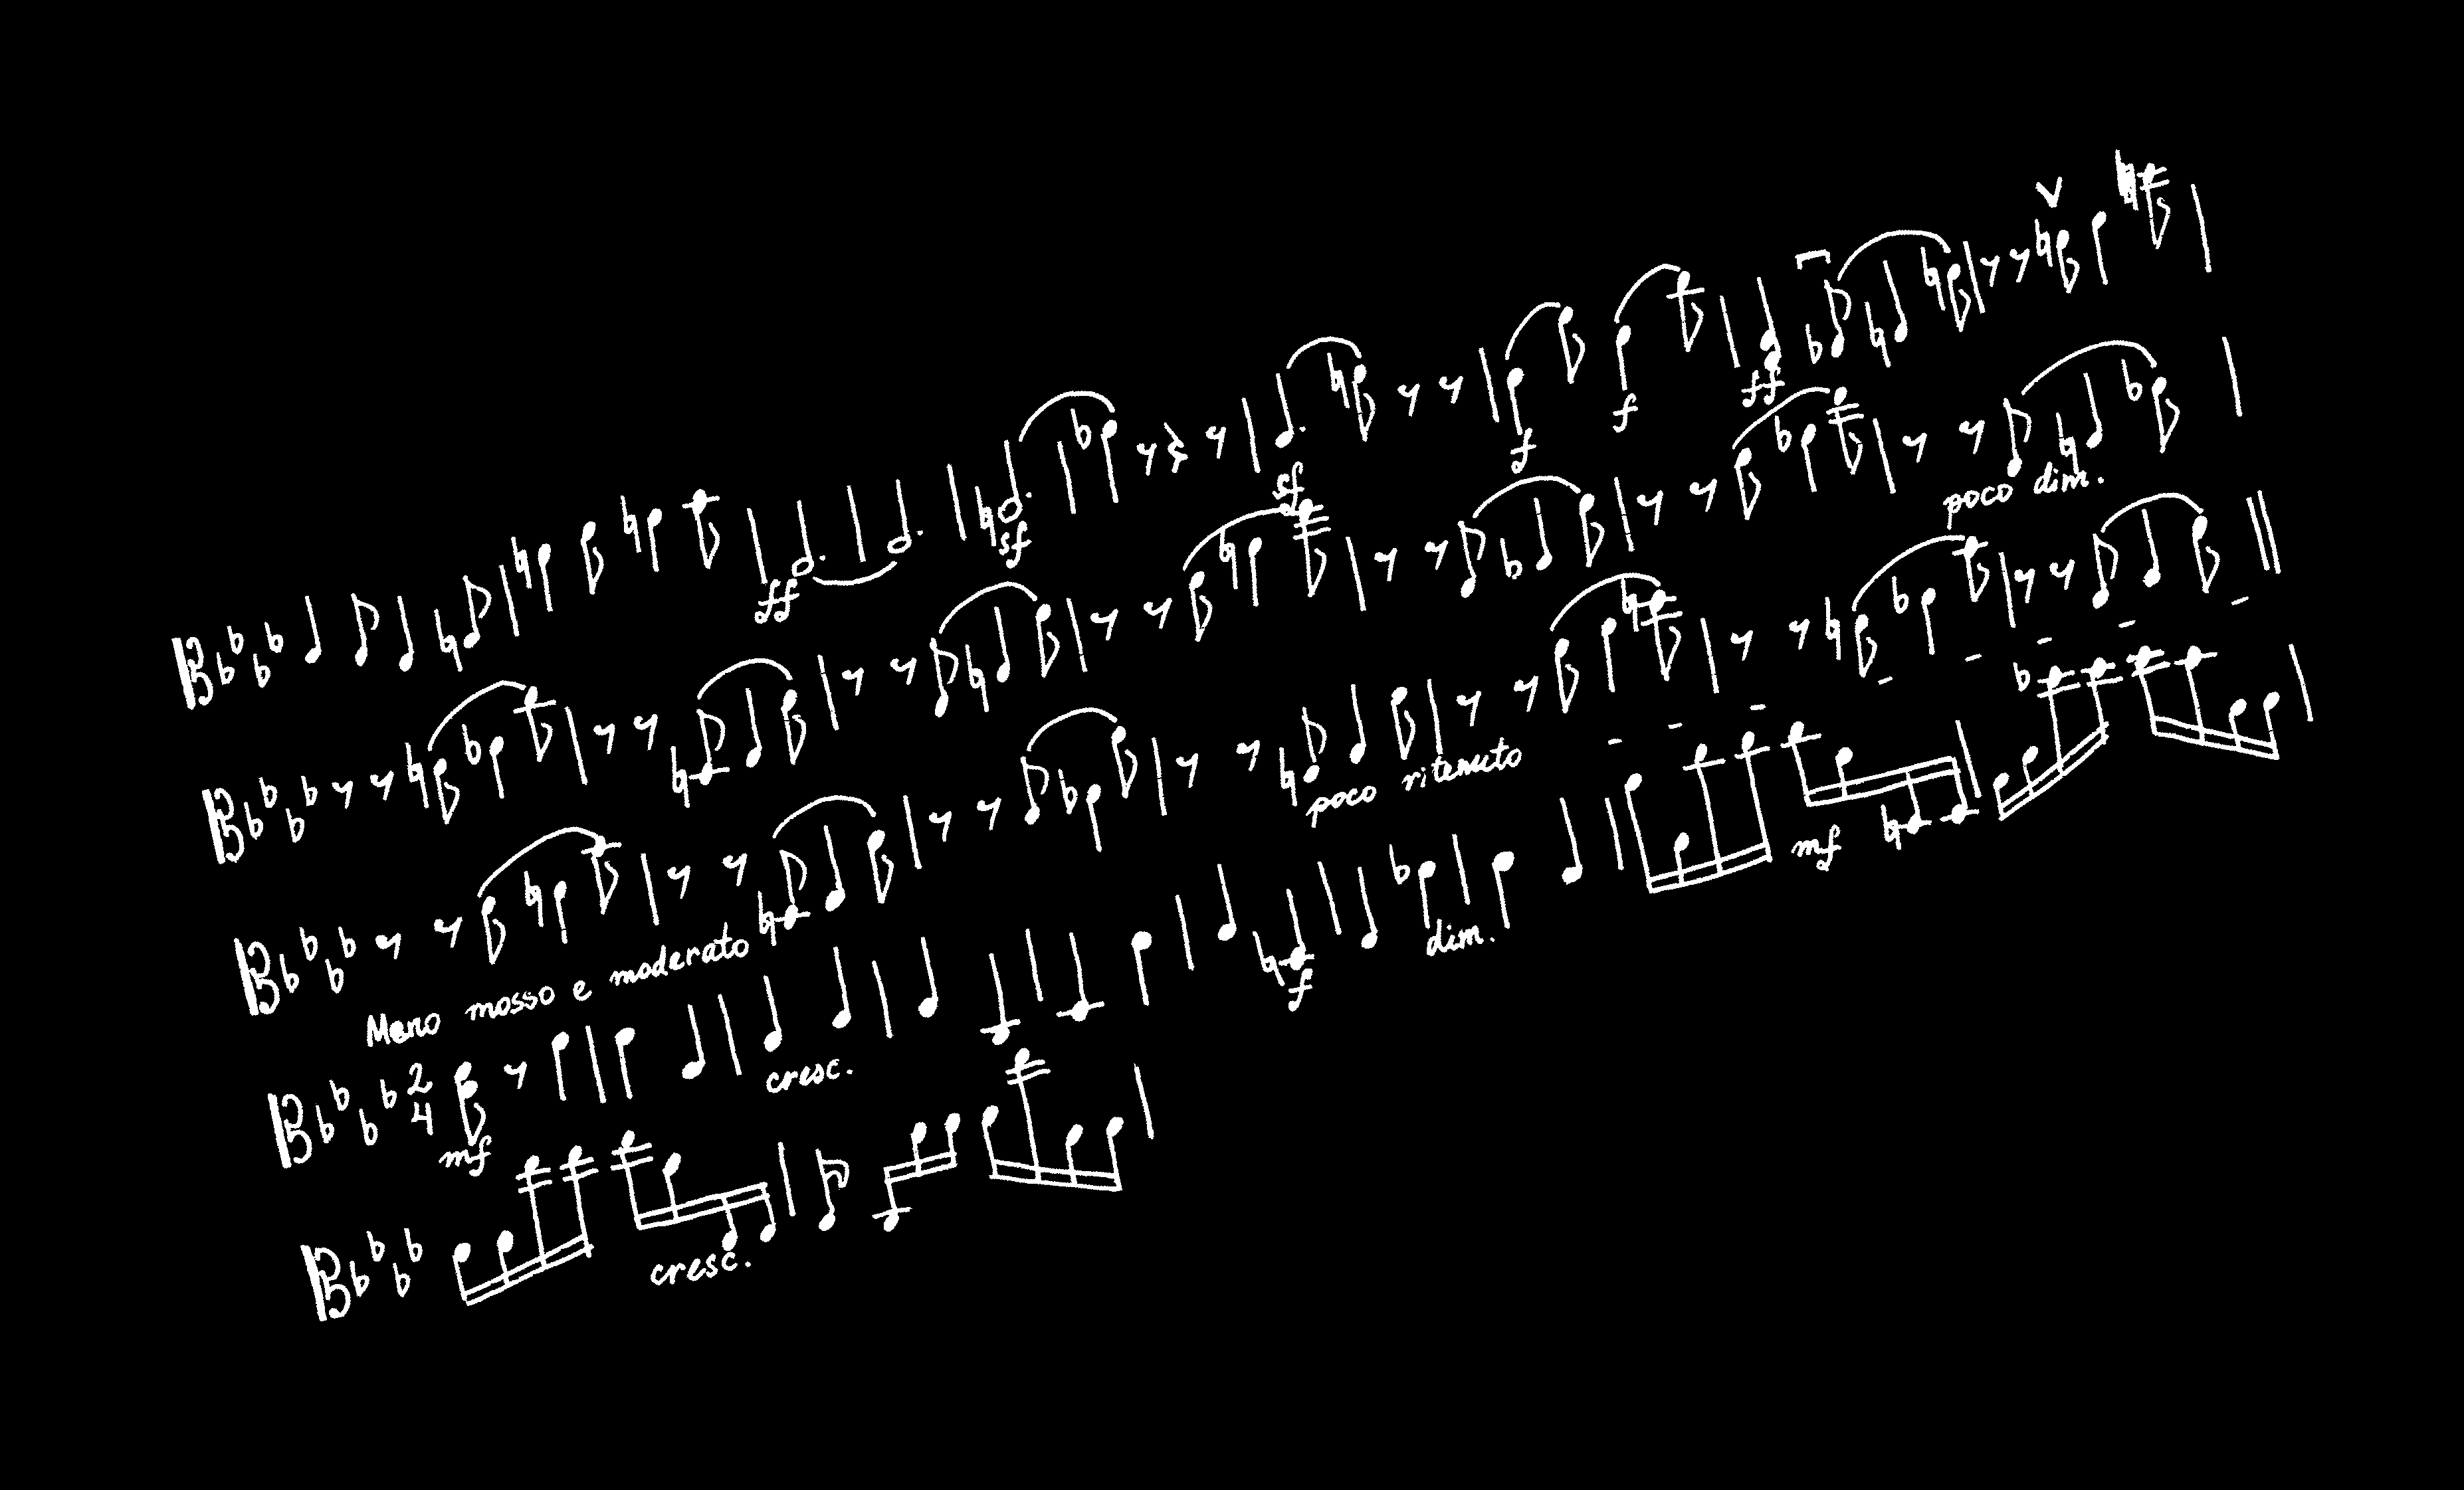 ff sf sf f f ff
poco dim.
poco ritenuto
Meno mosso e moderato
2
4
mf cresc. f dim. mf
cresc.